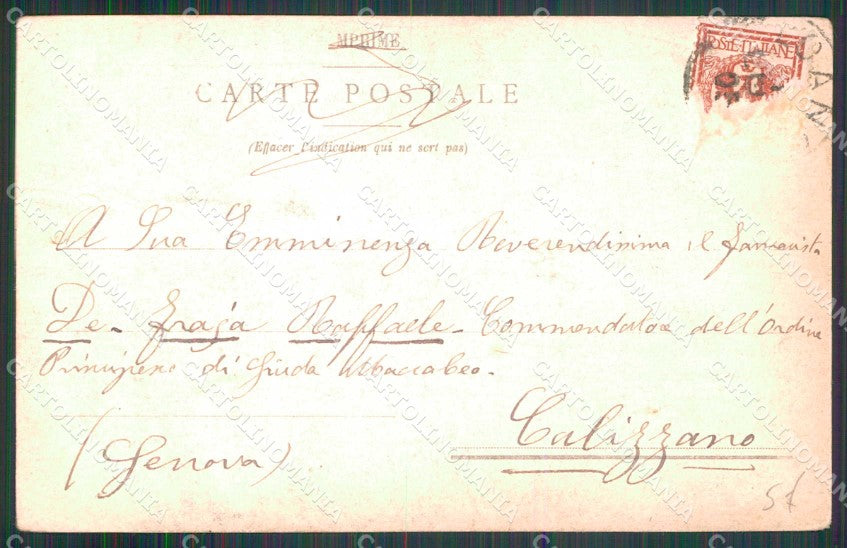 IMPRIMÉ
POSTE ITALIANE
CARTE POSTALE
(Effacer l'indication qui ne sert pas)
A Sua Emminenza Reverendissima il
De-Fraja Raffaele - Commendatore dell'Ordine
di Giuda Maccabeo.
Calizzano
(Genova)
CARTOLINOMANIA